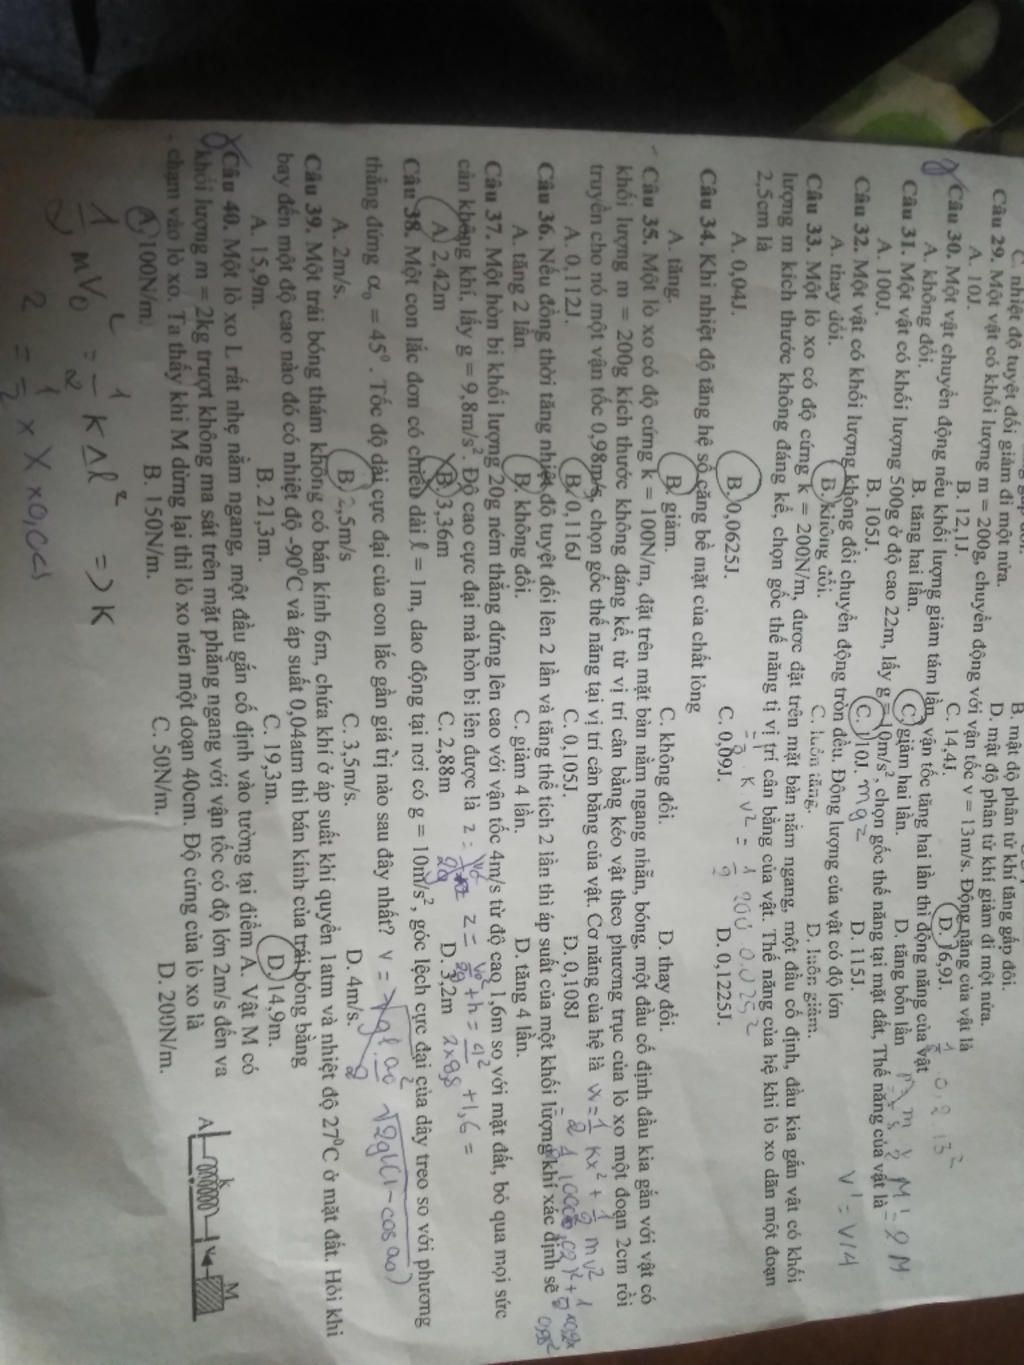 C. nhiệt độ tuyệt đối giảm đi một nửa.
B. mật độ phân tử khí tăng gấp đôi.
D. mật độ phân tử khí giảm đi một nửa.
Câu 29. Một vật có khối lượng m = 200g, chuyển động với vận tốc v = 13m/s. Động năng của vật là
A. 10J. B. 12,1J. C. 14,4J. D. 16,9J.
Câu 30. Một vật chuyển động nếu khối lượng giảm tám lần, vận tốc tăng hai lần thì động năng của vật
A. không đổi. B. tăng hai lần. C. giảm hai lần. D. tăng bốn lần
Câu 31. Một vật có khối lượng 500g ở độ cao 22m, lấy g = 10m/s², chọn gốc thế năng tại mặt đất, Thế năng của vật là
A. 100J. B. 105J. C. 110J. D. 115J.
Câu 32. Một vật có khối lượng không đổi chuyển động tròn đều. Động lượng của vật có độ lớn
A. thay đổi. B. không đổi. C. luôn tăng. D. luôn giảm.
Câu 33. Một lò xo có độ cứng k = 200N/m, được đặt trên mặt bàn nằm ngang, một đầu cố định, đầu kia gắn vật có khối
lượng m kích thước không đáng kể, chọn gốc thế năng tị vị trí cân bằng của vật. Thế năng của hệ khi lò xo dãn một đoạn
2,5cm là
A. 0,04J. B. 0,0625J. C. 0,09J. D. 0,225J.
Câu 34. Khi nhiệt độ tăng hệ số căng bề mặt của chất lỏng
A. tăng. B. giảm. C. không đổi. D. thay đổi.
Câu 35. Một lò xo có độ cứng k = 100N/m, đặt trên mặt bàn nằm ngang nhẵn, bóng, một đầu cố định đầu kia gắn với vật có
khối lượng m = 200g kích thước không đáng kể, từ vị trí cân bằng kéo vật theo phương trục của lò xo một đoạn 2cm rồi
truyền cho nó một vận tốc 0,98m/s, chọn gốc thế năng tại vị trí cân bằng của vật. Cơ năng của hệ là
A. 0,112J. B. 0,116J C. 0,105J. D. 0,108J
Câu 36. Nếu đồng thời tăng nhiệt độ tuyệt đối lên 2 lần và tăng thể tích 2 lần thì áp suất của một khối lượng khí xác định sẽ
A. tăng 2 lần. B. không đổi. C. giảm 4 lần. D. tăng 4 lần.
Câu 37. Một hòn bi khối lượng 20g ném thẳng đứng lên cao với vận tốc 4m/s từ độ cao 1,6m so với mặt đất, bỏ qua mọi sức
cản không khí, lấy g = 9,8m/s². Độ cao cực đại mà hòn bi lên được là
A. 2,42m B. 3,36m C. 2,88m D. 3,2m
Câu 38. Một con lắc đơn có chiều dài ℓ = 1m, dao động tại nơi có g = 10m/s², góc lệch cực đại của dây treo so với phương
thẳng đứng α₀ = 45⁰. Tốc độ dài cực đại của con lắc gần giá trị nào sau đây nhất?
A. 2m/s. B. 2,5m/s C. 3,5m/s. D. 4m/s.
Câu 39. Một trái bóng thám không có bán kính 6m, chứa khí ở áp suất khí quyển 1atm và nhiệt độ 27⁰C ở mặt đất. Hỏi khi
bay đến một độ cao nào đó có nhiệt độ -90⁰C và áp suất 0,04atm thì bán kính của trái bóng bằng
A. 15,9m. B. 21,3m. C. 19,3m. D. 14,9m.
Câu 40. Một lò xo L rất nhẹ nằm ngang, một đầu gắn cố định vào tường tại điểm A. Vật M có
khối lượng m = 2kg trượt không ma sát trên mặt phẳng ngang với vận tốc có độ lớn 2m/s đến va
chạm vào lò xo. Ta thấy khi M dừng lại thì lò xo nén một đoạn 40cm. Độ cứng của lò xo là
A. 100N/m. B. 150N/m. C. 50N/m. D. 200N/m.
A k v M
1/2 mv₀² = 1/2 K Δl² => K